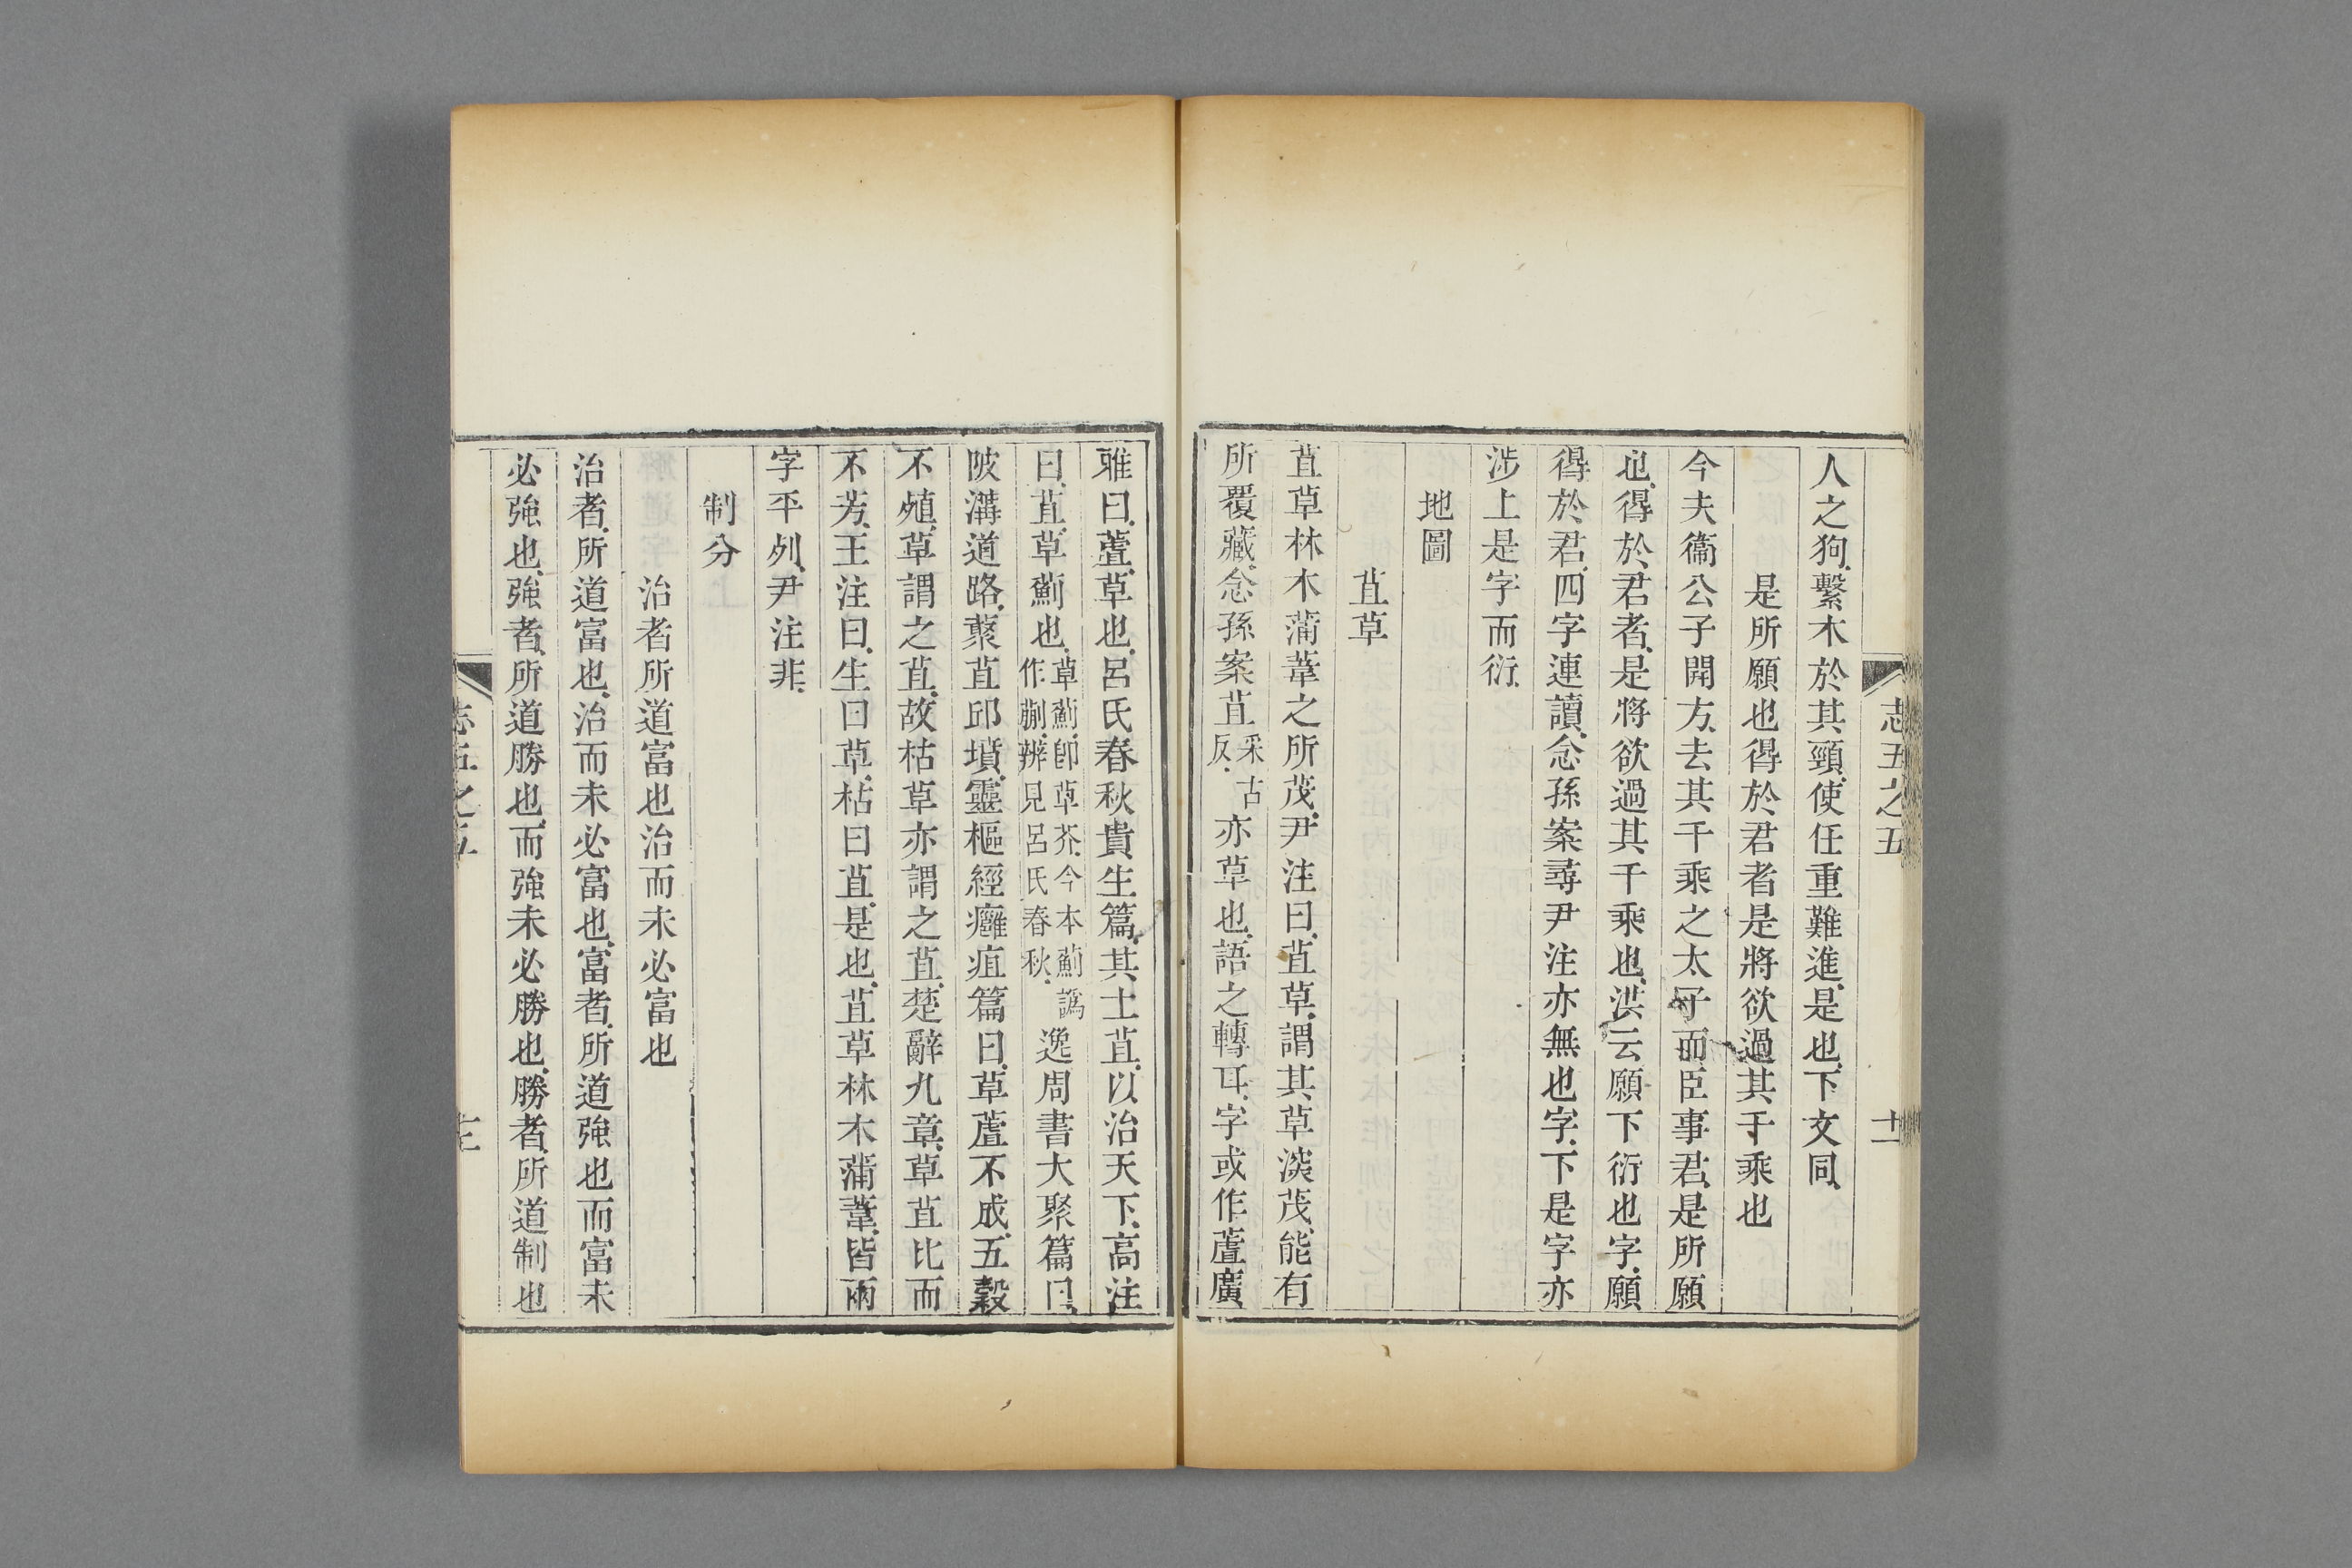 志五之五
十一
人之狗繫木於其頸使任重難進是也下文同
是所願也得於君者是將欲過其千乘也
今夫衞公子開方去其千乘之太子而臣事君是所願
也得於君者是將欲過其千乘也洪云願下衍也字願
得於君四字連讀念孫案尋尹注亦無也字下是字亦
涉上是字而衍
地圖
苴草
苴草林木蒲葦之所茂尹注曰苴草謂其草淡茂能有
所覆藏念孫案苴采古反亦草也語之轉耳字或作蒩廣
雅曰蒩草也呂氏春秋貴生篇其土苴以治天下高注
曰苴草薊也草薊卽草芥今本薊譌作蒯辨見呂氏春秋逸周書大聚篇曰
陂溝道路藂苴邱墳靈樞經癰疽篇曰草蒩不成五穀
不殖草謂之苴故枯草亦謂之苴楚辭九章草苴比而
不芳王注曰生曰草枯曰苴是也苴草林木蒲葦皆兩
字平列尹注非
制分
治者所道富也治而未必富也
治者所道富也治而未必富也富者所道強也而富未
必強也強者所道勝也而強未必勝也勝者所道制也
志五之五